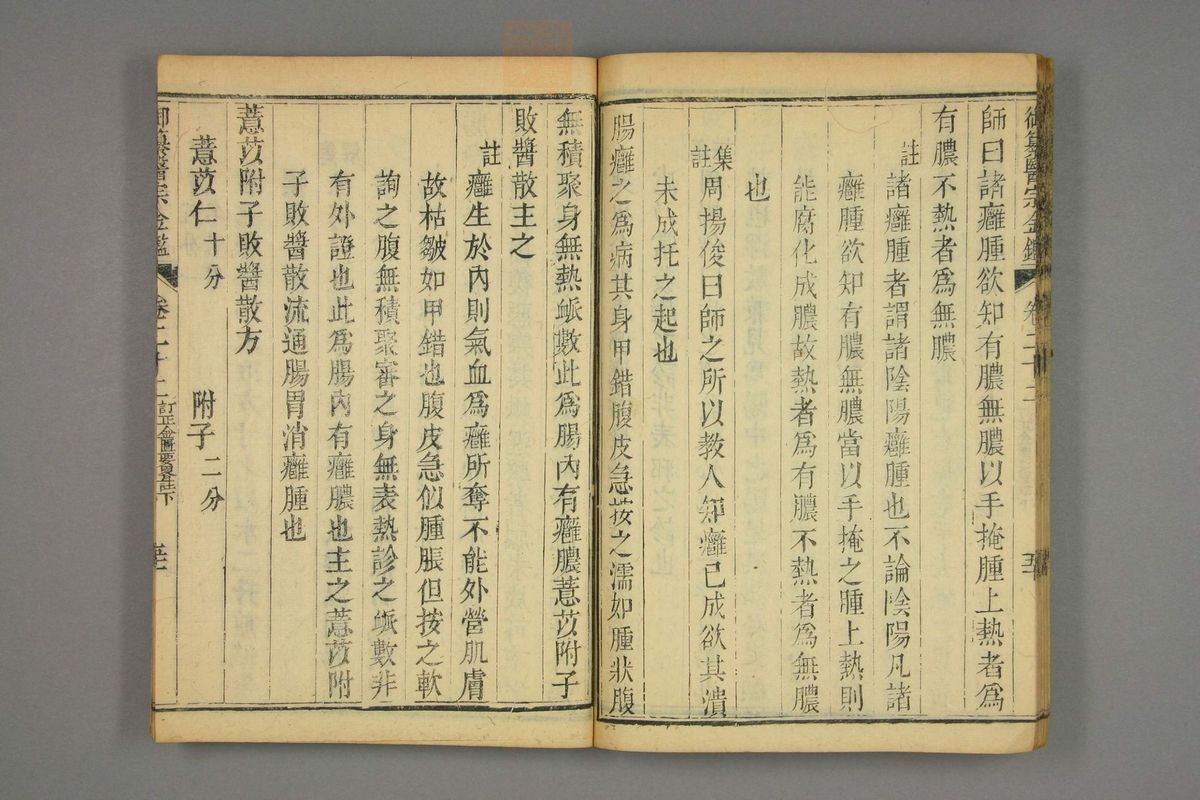 御纂醫宗金鑑 卷二十二
師曰諸癰腫欲知有膿無膿以手掩腫上熱者爲
有膿不熱者爲無膿
註
諸癰腫者謂諸陰陽癰腫也不論陰陽凡諸
癰腫欲知有膿無膿當以手掩之腫上熱則
能腐化成膿故熱者爲有膿不熱者爲無膿
也
集註
周揚俊曰師之所以教人知癰已成欲其潰
未成托之起也
腸癰之爲病其身甲錯腹皮急按之濡如腫狀腹
無積聚身無熱脈數此爲腸內有癰膿薏苡附子
敗醬散主之
註
癰生於內則氣血爲癰所奪不能外營肌膚
故枯皺如甲錯也腹皮急似腫脹但按之軟
詢之腹無積聚審之身無表熱診之脈數非
有外證也此爲腸內有癰膿也主之薏苡附
子敗醬散流通腸胃消癰腫也
薏苡附子敗醬散方
薏苡仁十分 附子二分
御纂醫宗金鑑 卷二十二 訂正金匱要畧註下